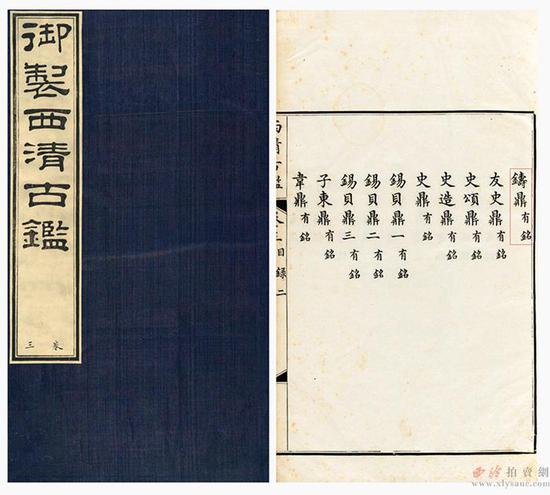 御製西清古鑑
卷三
鑄鼎有銘
友史鼎有銘
史頌鼎有銘
史造鼎有銘
史鼎有銘
錫貝鼎一有銘
錫貝鼎二有銘
錫貝鼎三有銘
子東鼎有銘
韋鼎有銘
西清古鑑 卷 目錄 二
西泠拍賣網
www.xlysauc.com